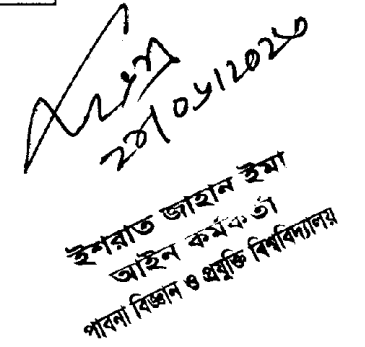 ইশরাত জাহান ইমা
আইন কর্মকর্তা
পাবনা বিজ্ঞান ও প্রযুক্তি বিশ্ববিদ্যালয়